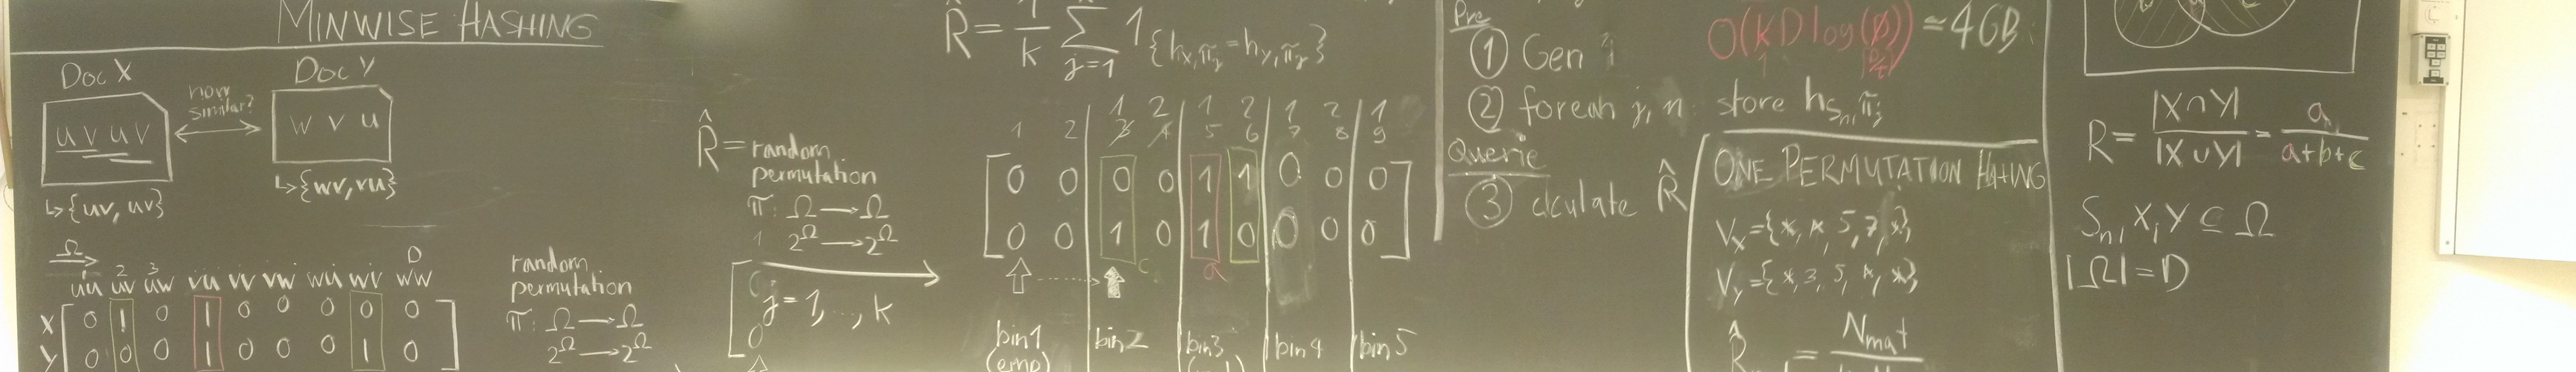 MINWISE HASHING
Doc X
how similar?
Doc Y
u v u v
w v u
↳{uv, uv}
↳{wv, vu}
Ω
1 2 3 D
uu uv uw vu vv vw wu wv ww
X [0 1 0 1 0 0 0 0 0]
Y [0 0 0 1 0 0 0 1 0]
random
permutation
π: Ω → Ω
2^Ω → 2^Ω
R̂ = random
permutation
π: Ω → Ω
2^Ω → 2^Ω
j = 1, .., k
R̂ = 1/k Σ_{j=1} 1_{h_{x,π_j} = h_{y,π_j}}
1 2 1 2 1 2 1
1 2 3 4 5 6 7 8 9
[0 0 0 0 1 1 0 0 0]
[0 0 1 0 1 0 0 0 0]
c a
bin1 bin2 bin3 bin4 bin5
(emp)
Pre
① Gen
② foreach j, n: store h_{S_n, π_j}
Querie
③ calculate R̂
O(k D log(D)) ≈ 4GB
ONE PERMUTATION HASHING
V_x = {*, *, 5, 7, *}
V_y = {*, 3, 5, *, *}
R̂ = N_mat
R = |X∩Y| / |X∪Y| = a / a+b+c
S_n, X, Y ⊆ Ω
|Ω| = D